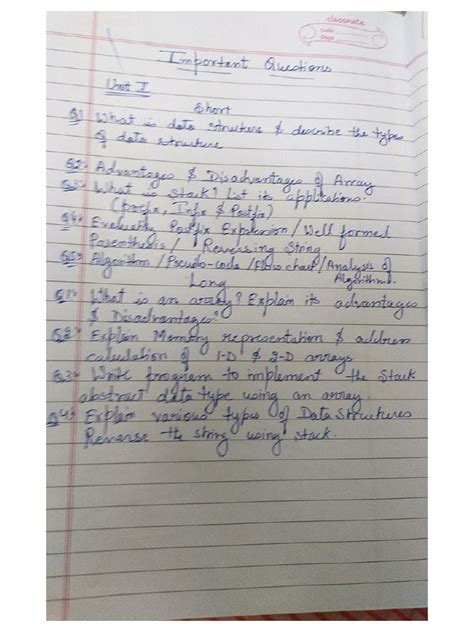 classmate
Date
Page
Important Questions
Unit I
Short
Q1 What is data strutures & describe the types
of data structure
Q2 Advantages & Disadvantages of Array
Q3 What is Stack? List its applications.
(prefix, Infix & Postfix)
Q4 Evaluating Postfix Expression / Well formed
Parenthesis / Reversing String
Q5 Algorithm / Pseudo-code / Flow chart / Analysis of
Algorithm.
Long
Q1 What is an array? Explain its advantages
& Disadvantages?
Q2 Explain Memory representation & address
calculation of 1-D & 2-D arrays
Q3 Write program to implement the Stack
abstract data type using an array.
Q4 Explain various types of Data Structures
Reverse the string using stack.